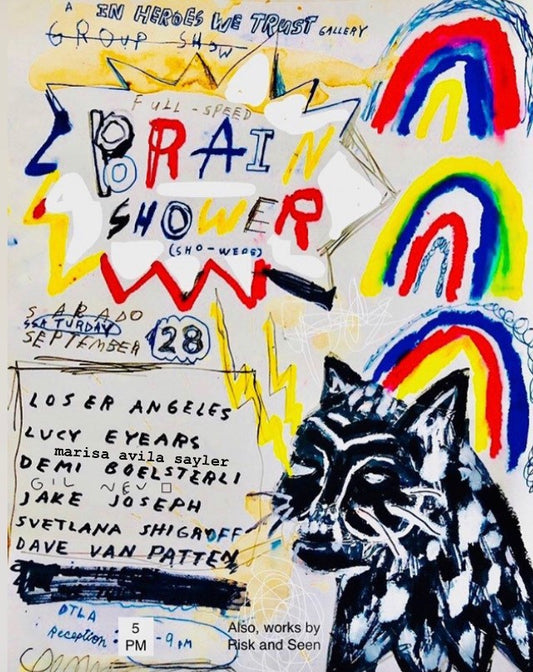 A IN HEROES WE TRUST GALLERY
GROUP SHOW
FULL-SPEED
BRAIN
SHOWER
(SHO-WERG)
SABADO
SATURDAY
SEPTEMBER 28
LOSER ANGELES
LUCY EYEARS
marisa avila sayler
DEMI BOELSTERLI
GIL NEVO
JAKE JOSEPH
SVETLANA SHIGROFF
DAVE VAN PATTEN
DTLA
Reception: 5 PM -9 PM
Also, works by
Risk and Seen